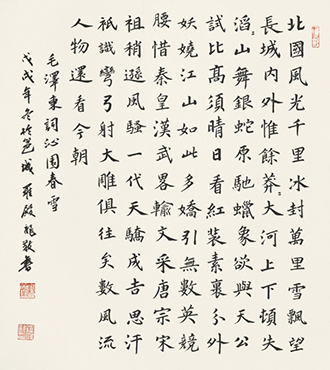 北國風光千里冰封萬里雪飄望
長城内外惟餘莽〻大河上下頓失
滔〻山舞銀蛇原馳蠟象欲與天公
試比高須晴日看紅裝素裹分外
妖嬈江山如此多嬌引無數英競
腰惜秦皇漢武畧輸文采唐宗宋
祖稍遜風騷一代天驕成吉思汗
祇識彎弓射大雕俱往矣數風流
人物還看今朝
毛澤東詞沁園春雪
戊戌年冬於邕城羅殿龍敬書